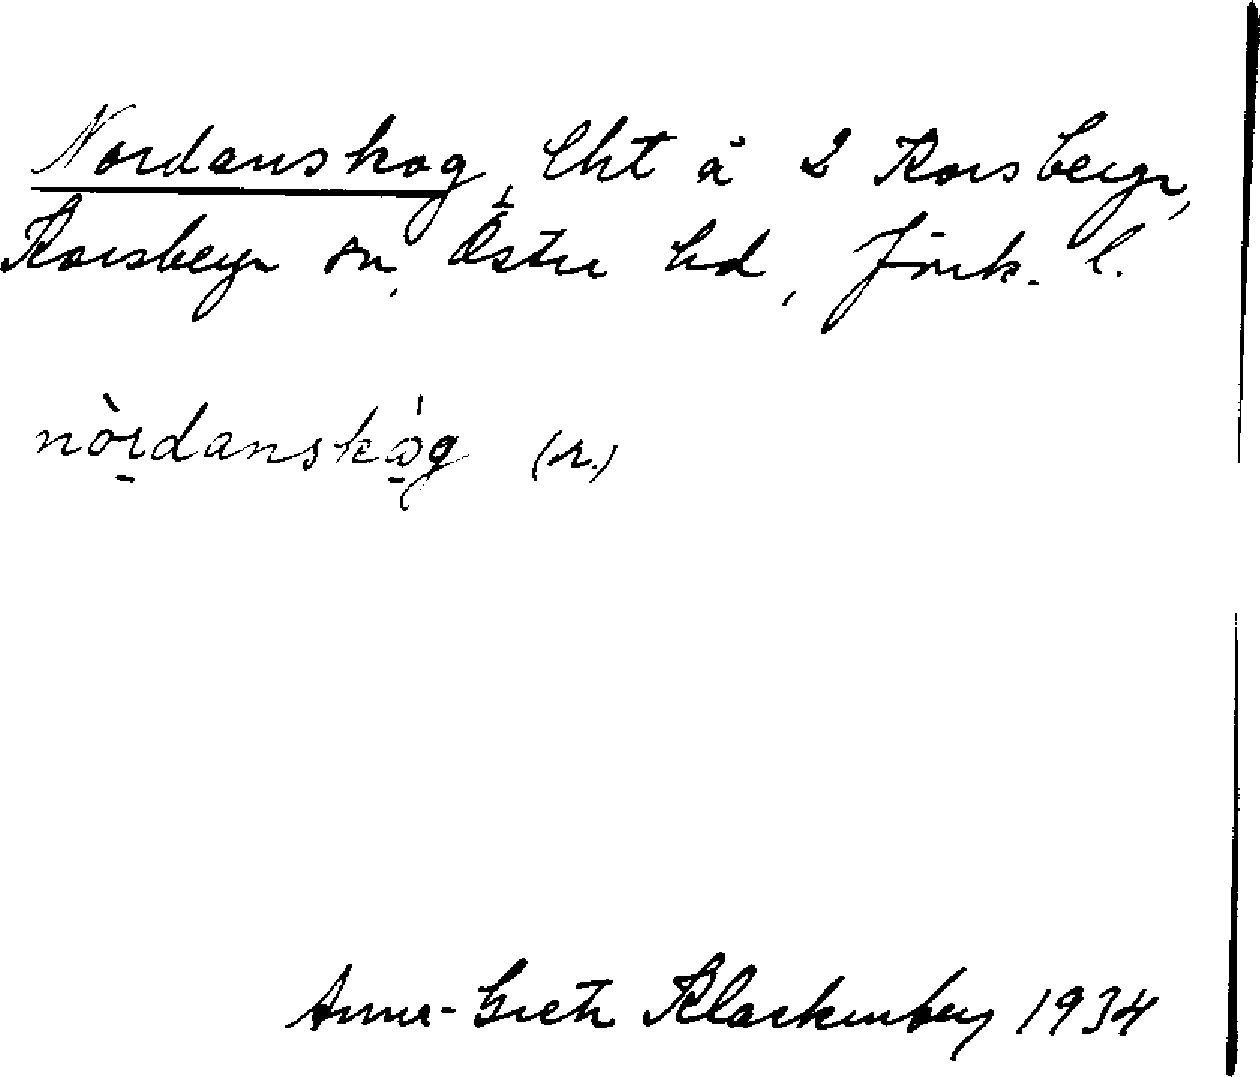 Nordanskog, lht å 2 Korsberga,
Korsberga sn, Östra hd, Jönk. l.
nòrdanskóg (r.)
Anna-Greta Klackenberg 1934